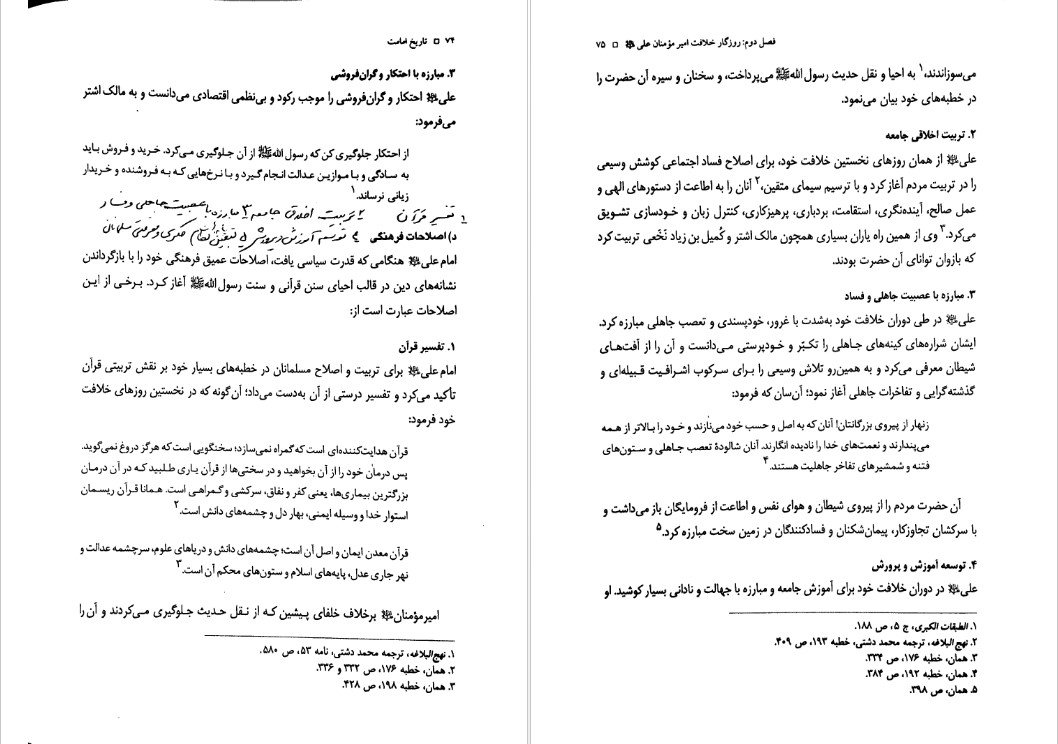 ۷۴ □ تاریخ امامت
۳. مبارزه با احتکار و گران‌فروشی
علی﷼ احتکار و گران‌فروشی را موجب رکود و بی‌نظمی اقتصادی می‌دانست و به مالک اشتر
می‌فرمود:
از احتکار جلوگیری کن که رسول الله ﷺ از آن جلوگیری می‌کرد. خرید و فروش باید
به سادگی و با موازین عدالت انجام گیرد و با نرخ‌هایی که به فروشنده و خریدار
زیانی نرساند.۱
۱ تفسیر قرآن ۲ تربیت اخلاق جامعه ۳ مبارزه با عصبیت جاهلی و فساد
د) اصلاحات فرهنگی ۴ توسعه آموزش و پرورش ۵
امام علی هنگامی که قدرت سیاسی یافت، اصلاحات عمیق فرهنگی خود را با بازگرداندن
نشانه‌های دین در قالب احیای سنن قرآنی و سنت رسول الله ﷺ آغاز کرد. برخی از این
اصلاحات عبارت است از:
۱. تفسیر قرآن
امام علی برای تربیت و اصلاح مسلمانان در خطبه‌های بسیار خود بر نقش تربیتی قرآن
تأکید می‌کرد و تفسیر درستی از آن به‌دست می‌داد؛ آن‌گونه که در نخستین روزهای خلافت
خود فرمود:
قرآن هدایت‌کننده‌ای است که گمراه نمی‌سازد؛ سخنگویی است که هرگز دروغ نمی‌گوید.
پس درمان خود را از آن بخواهید و در سختی‌ها از قرآن یاری طلبید که در آن درمان
بزرگترین بیماری‌ها، یعنی کفر و نفاق، سرکشی و گمراهی است. همانا قرآن ریسمان
استوار خدا و وسیله ایمنی، بهار دل و چشمه‌های دانش است.۲
قرآن معدن ایمان و اصل آن است؛ چشمه‌های دانش و دریاهای علوم، سرچشمه عدالت و
نهر جاری عدل، پایه‌های اسلام و ستون‌های محکم آن است.۳
امیرمؤمنان برخلاف خلفای پیشین که از نقل حدیث جلوگیری می‌کردند و آن را
۱. نهج‌البلاغه، ترجمه محمد دشتی، نامه ۵۳، ص ۵۸۰.
۲. همان، خطبه ۱۷۶، ص ۳۳۲ و ۳۳۶.
۳. همان، خطبه ۱۹۸، ص ۴۲۸.
فصل دوم: روزگار خلافت امیر مؤمنان علی □ ۷۵
می‌سوزاندند،۱ به احیا و نقل حدیث رسول الله ﷺ می‌پرداخت، و سخنان و سیره آن حضرت را
در خطبه‌های خود بیان می‌نمود.
۲. تربیت اخلاقی جامعه
علی از همان روزهای نخستین خلافت خود، برای اصلاح فساد اجتماعی کوشش وسیعی
را در تربیت مردم آغاز کرد و با ترسیم سیمای متقین،۲ آنان را به اطاعت از دستورهای الهی و
عمل صالح، آینده‌نگری، استقامت، بردباری، پرهیزکاری، کنترل زبان و خودسازی تشویق
می‌کرد.۳ وی از همین راه یاران بسیاری همچون مالک اشتر و کُمیل بن زیاد نَخَعی تربیت کرد
که بازوان توانای آن حضرت بودند.
۳. مبارزه با عصبیت جاهلی و فساد
علی در طی دوران خلافت خود به‌شدت با غرور، خودپسندی و تعصب جاهلی مبارزه کرد.
ایشان شراره‌های کینه‌های جاهلی را تکبّر و خودپرستی می‌دانست و آن را از آفت‌های
شیطان معرفی می‌کرد و به همین‌رو تلاش وسیعی را برای سرکوب اشرافیت قبیله‌ای و
گذشته‌گرایی و تفاخرات جاهلی آغاز نمود؛ آن‌سان که فرمود:
زنهار از پیروی بزرگانتان! آنان که به اصل و حسب خود می‌نازند و خود را بالاتر از همه
می‌پندارند و نعمت‌های خدا را نادیده انگارند. آنان شالودۀ تعصب جاهلی و ستون‌های
فتنه و شمشیرهای تفاخر جاهلیت هستند.۴
آن حضرت مردم را از پیروی شیطان و هوای نفس و اطاعت از فرومایگان باز می‌داشت و
با سرکشان تجاوزکار، پیمان‌شکنان و فسادکنندگان در زمین سخت مبارزه کرد.۵
۴. توسعه آموزش و پرورش
علی در دوران خلافت خود برای آموزش جامعه و مبارزه با جهالت و نادانی بسیار کوشید. او
۱. الطبقات الکبری، ج ۵، ص ۱۸۸.
۲. نهج‌البلاغه، ترجمه محمد دشتی، خطبه ۱۹۳، ص ۴۰۹.
۳. همان، خطبه ۱۷۶، ص ۳۳۴.
۴. همان، خطبه ۱۹۲، ص ۳۸۴.
۵. همان، ص ۳۹۸.